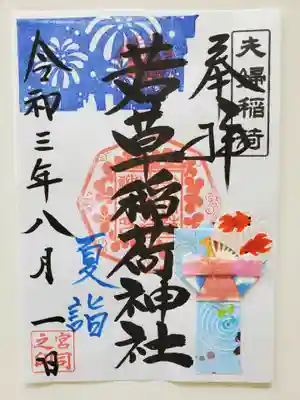 夫婦稲荷
奉拝
若草稲荷神社
夏詣
令和三年八月一日
宮司之印